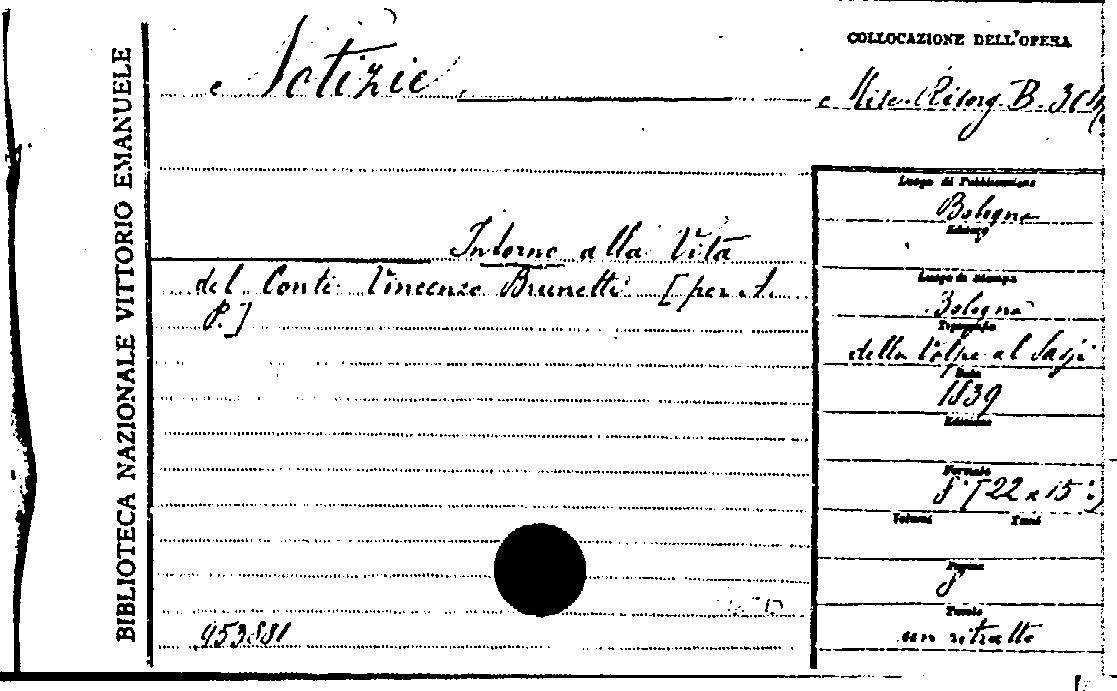 BIBLIOTECA NAZIONALE VITTORIO EMANUELE
Notizie
Intorno alla Vita
del Conte Vincenzo Brunetti [per
P.]
953881
COLLOCAZIONE DELL'OPERA
Misc. Risorg B.
Luogo di Pubblicazione
Bologna
Editore
Luogo di Stampa
Bologna
Tipografia
della Volpe al Sassi
Data
1839
Edizione
Formato
8° [22 x 15
Volumi Tomi
Pagine
8
Tavole
con ritratto